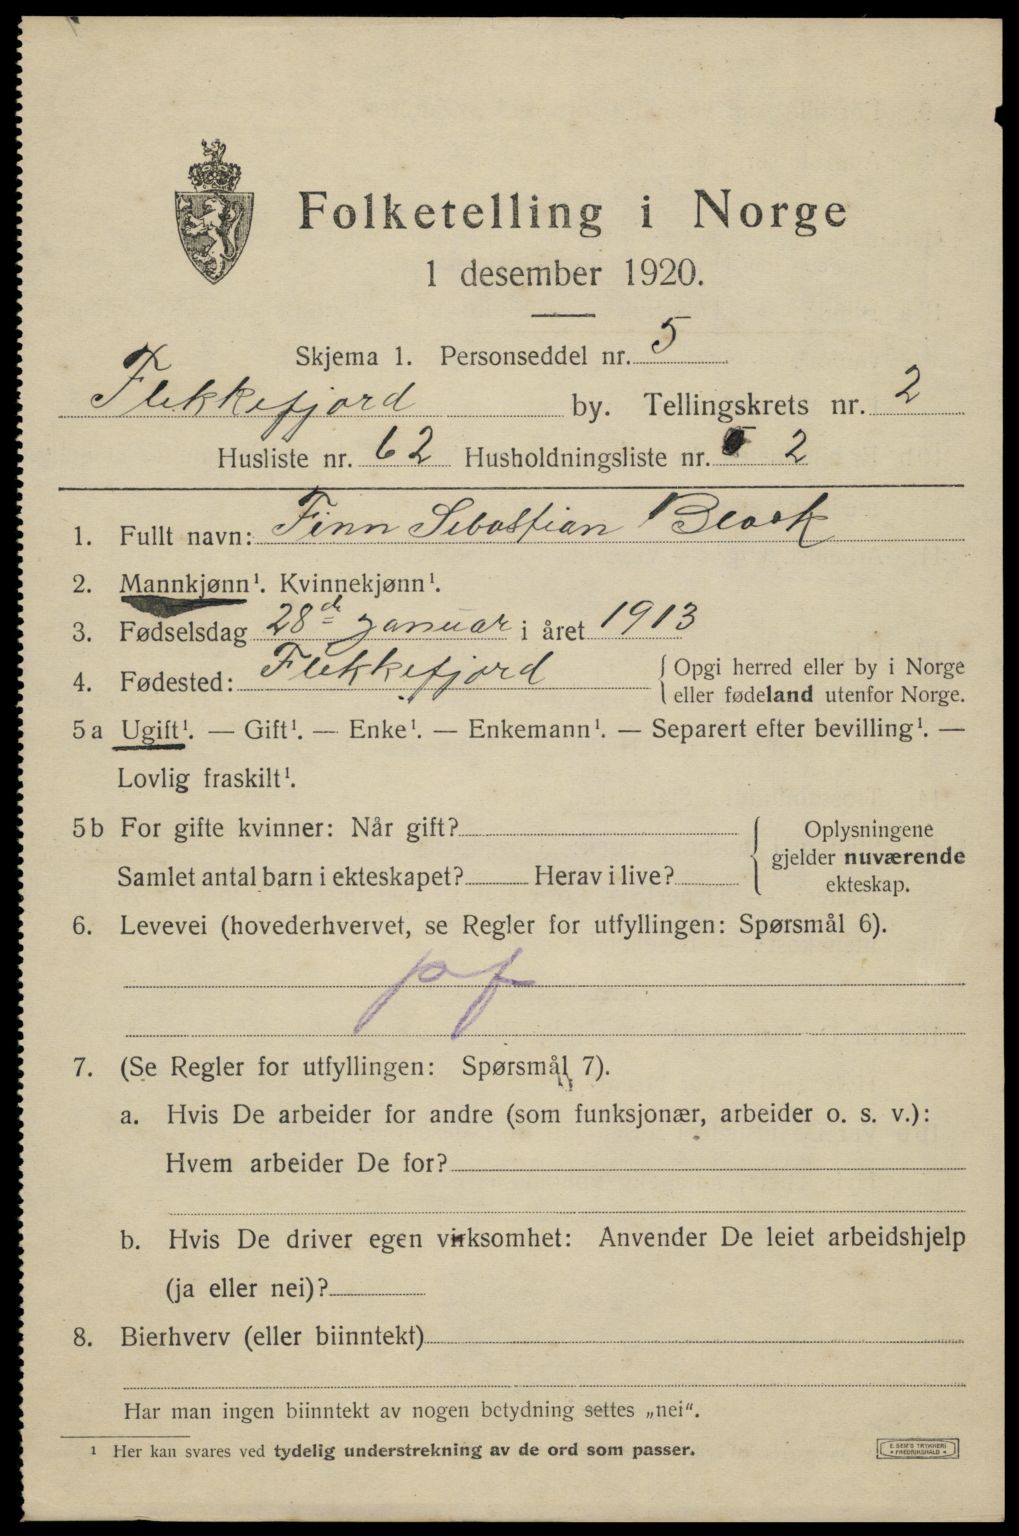 Folketelling i Norge
1 desember 1920.
Skjema 1. Personseddel nr. 5
Flekkefjord by. Tellingskrets nr. 2
Husliste nr. 62 Husholdningsliste nr. 2
1. Fullt navn: Finn Sebastian Beack
2. Mannkjønn¹. Kvinnekjønn¹.
3. Fødselsdag 28de januar i året 1913
4. Fødested: Flekkefjord
Opgi herred eller by i Norge
eller fødeland utenfor Norge.
5a Ugift¹. — Gift¹. — Enke¹. — Enkemann¹. — Separert efter bevilling¹. —
Lovlig fraskilt¹.
5b For gifte kvinner: Når gift?
Samlet antal barn i ekteskapet? Herav i live?
Oplysningene
gjelder nuværende
ekteskap.
6. Levevei (hovederhvervet, se Regler for utfyllingen: Spørsmål 6).
pf
7. (Se Regler for utfyllingen: Spørsmål 7).
a. Hvis De arbeider for andre (som funksjonær, arbeider o. s. v.):
Hvem arbeider De for?
b. Hvis De driver egen virksomhet: Anvender De leiet arbeidshjelp
(ja eller nei)?
8. Bierhverv (eller biinntekt)
Har man ingen biinntekt av nogen betydning settes „nei".
¹ Her kan svares ved tydelig understrekning av de ord som passer.
E. SEM'S TRYKKERI
• FREDRIKSHALD •